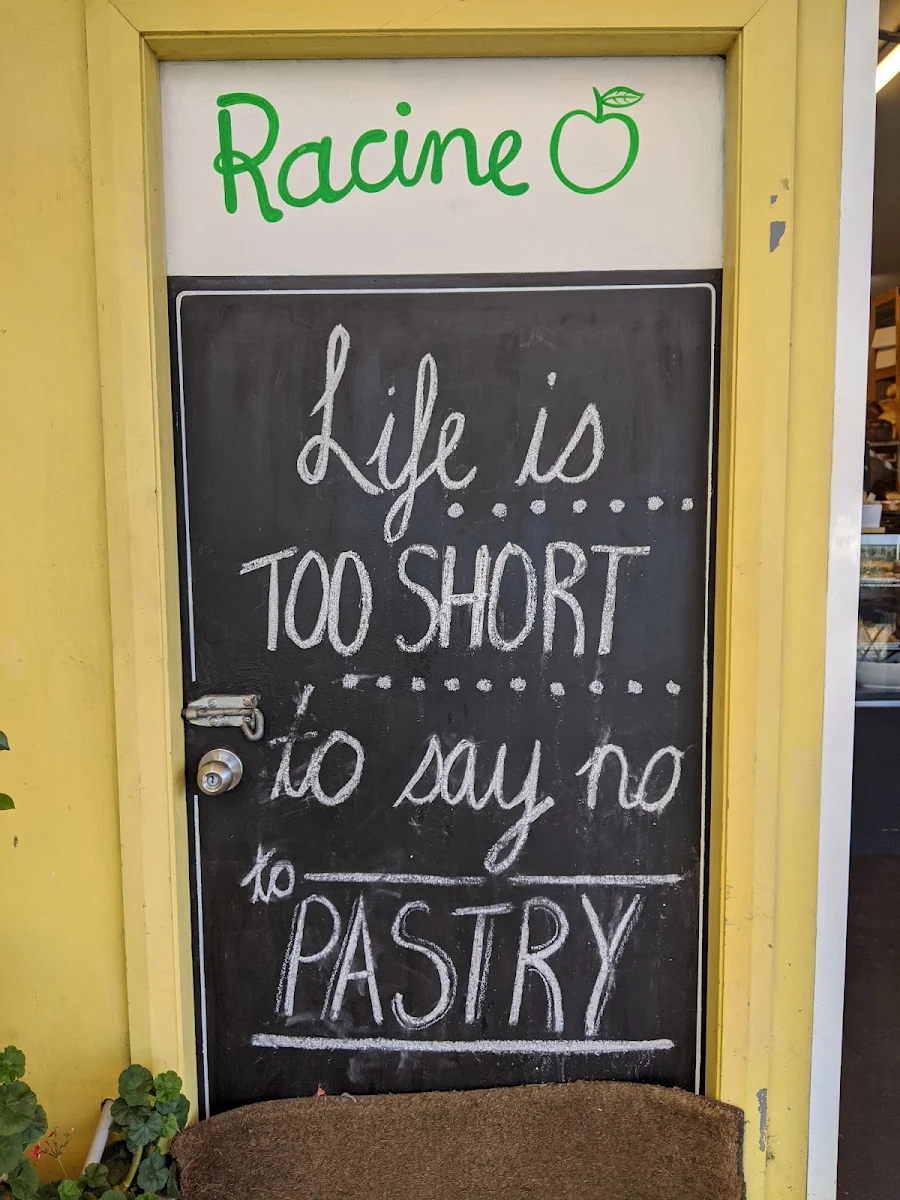 Racine
Life is
TOO SHORT
to say no
to
PASTRY